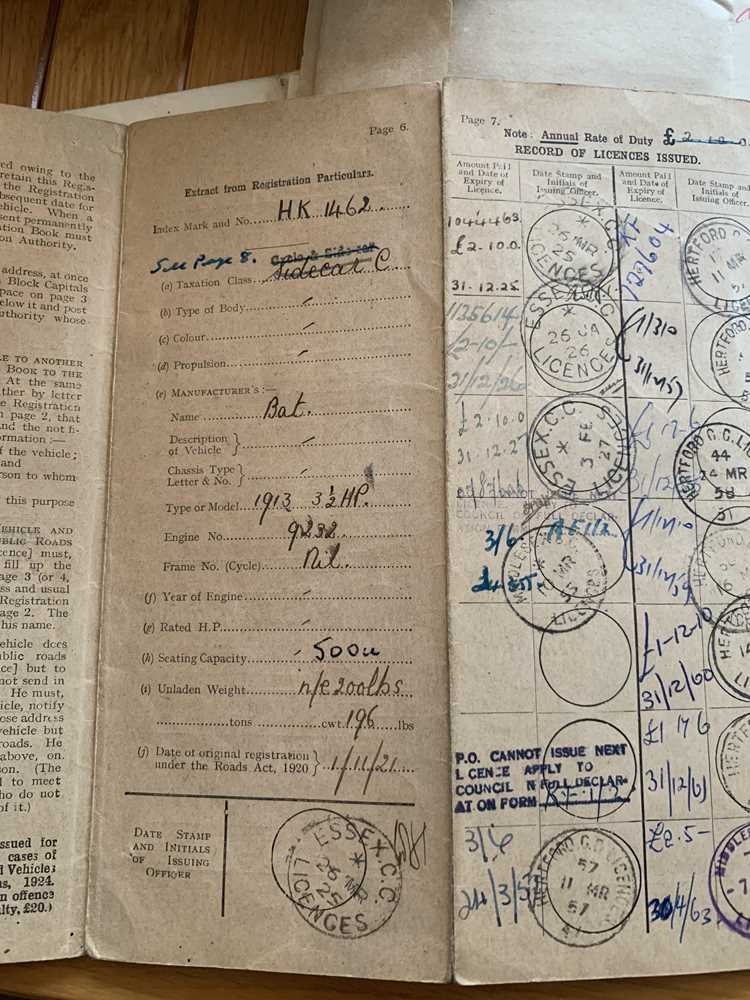 ed owing to the
retain this Regis-
the Registration
bsequent date for
hicle. When a
sent permanently
ation Book must
on Authority.
address, at once
Block Capitals
pace on page 3
elow it and post
uthority whose
LE TO ANOTHER
BOOK TO THE
At the same
ther by letter
e Registration
n page 2, that
and the not fi-
ormation :—
f the vehicle;
and
erson to whom
this purpose
EHICLE AND
UBLIC ROADS
cence] must,
fill up the
age 3 (or 4,
ss and usual
Registration
age 2. The
his name.
ehicle does
ublic roads
ce] but to
not send in
He must,
icle, notify
ose address
vehicle but
roads. He
above, on
son. (The
d to meet
ho do not
of it.)
ssued for
cases of
d Vehicles
ns, 1924.
n offence
lty, £20.)
Page 6.
Extract from Registration Particulars.
Index Mark and No. HK 1462
See Page 8.
(a) Taxation Class Sidecar C
(b) Type of Body
(c) Colour
(d) Propulsion
(e) MANUFACTURER'S :—
Name Bat.
Description of Vehicle
Chassis Type Letter & No.
Type or Model 1913 3½ HP.
Engine No. 9232
Frame No. (Cycle) Nil.
(f) Year of Engine
(g) Rated H.P.
(h) Seating Capacity 500cc
(i) Unladen Weight n/e 200lbs
tons cwt. 196 lbs
(j) Date of original registration under the Roads Act, 1920 1/11/21
DATE STAMP
AND INITIALS
OF ISSUING
OFFICER
ESSEX.C.C. LICENCES 26 MR 25
Page 7.
Note: Annual Rate of Duty £2.10.0
RECORD OF LICENCES ISSUED.
Amount Paid and Date of Expiry of Licence.
Date Stamp and Initials of Issuing Officer.
Amount Paid and Date of Expiry of Licence.
Date Stamp and Initials of Issuing Officer.
£2.10.0
31.12.25
ESSEX.C.C. LICENCES 26 MR 25
1135614
£2-10/-
31/12/26
ESSEX.C.C. LICENCES 26 JA 26
£2.10.0
31.12.27
ESSEX.C.C. LICENCES 3 FE 27
3/6
MIDDLE
MR
57
LICENCES
P.O. CANNOT ISSUE NEXT
LICENCE APPLY TO
COUNCIL
FULL DECLAR-
ATION FORM
3/6
24/3/5
HERTFORD C.C. LICENCES
57
11 MR
57
HERTFORD C
11 MR
57
LICE
31/12/57
HERTFORD
HERTFORD C.C. LI
44
14 MR
58
31
31/12/59
HERTFORD
£1-12-10
31/12/60
HERTF
£1 17 6
31/12/61
£2.5-
30/4/63
MIDDLE